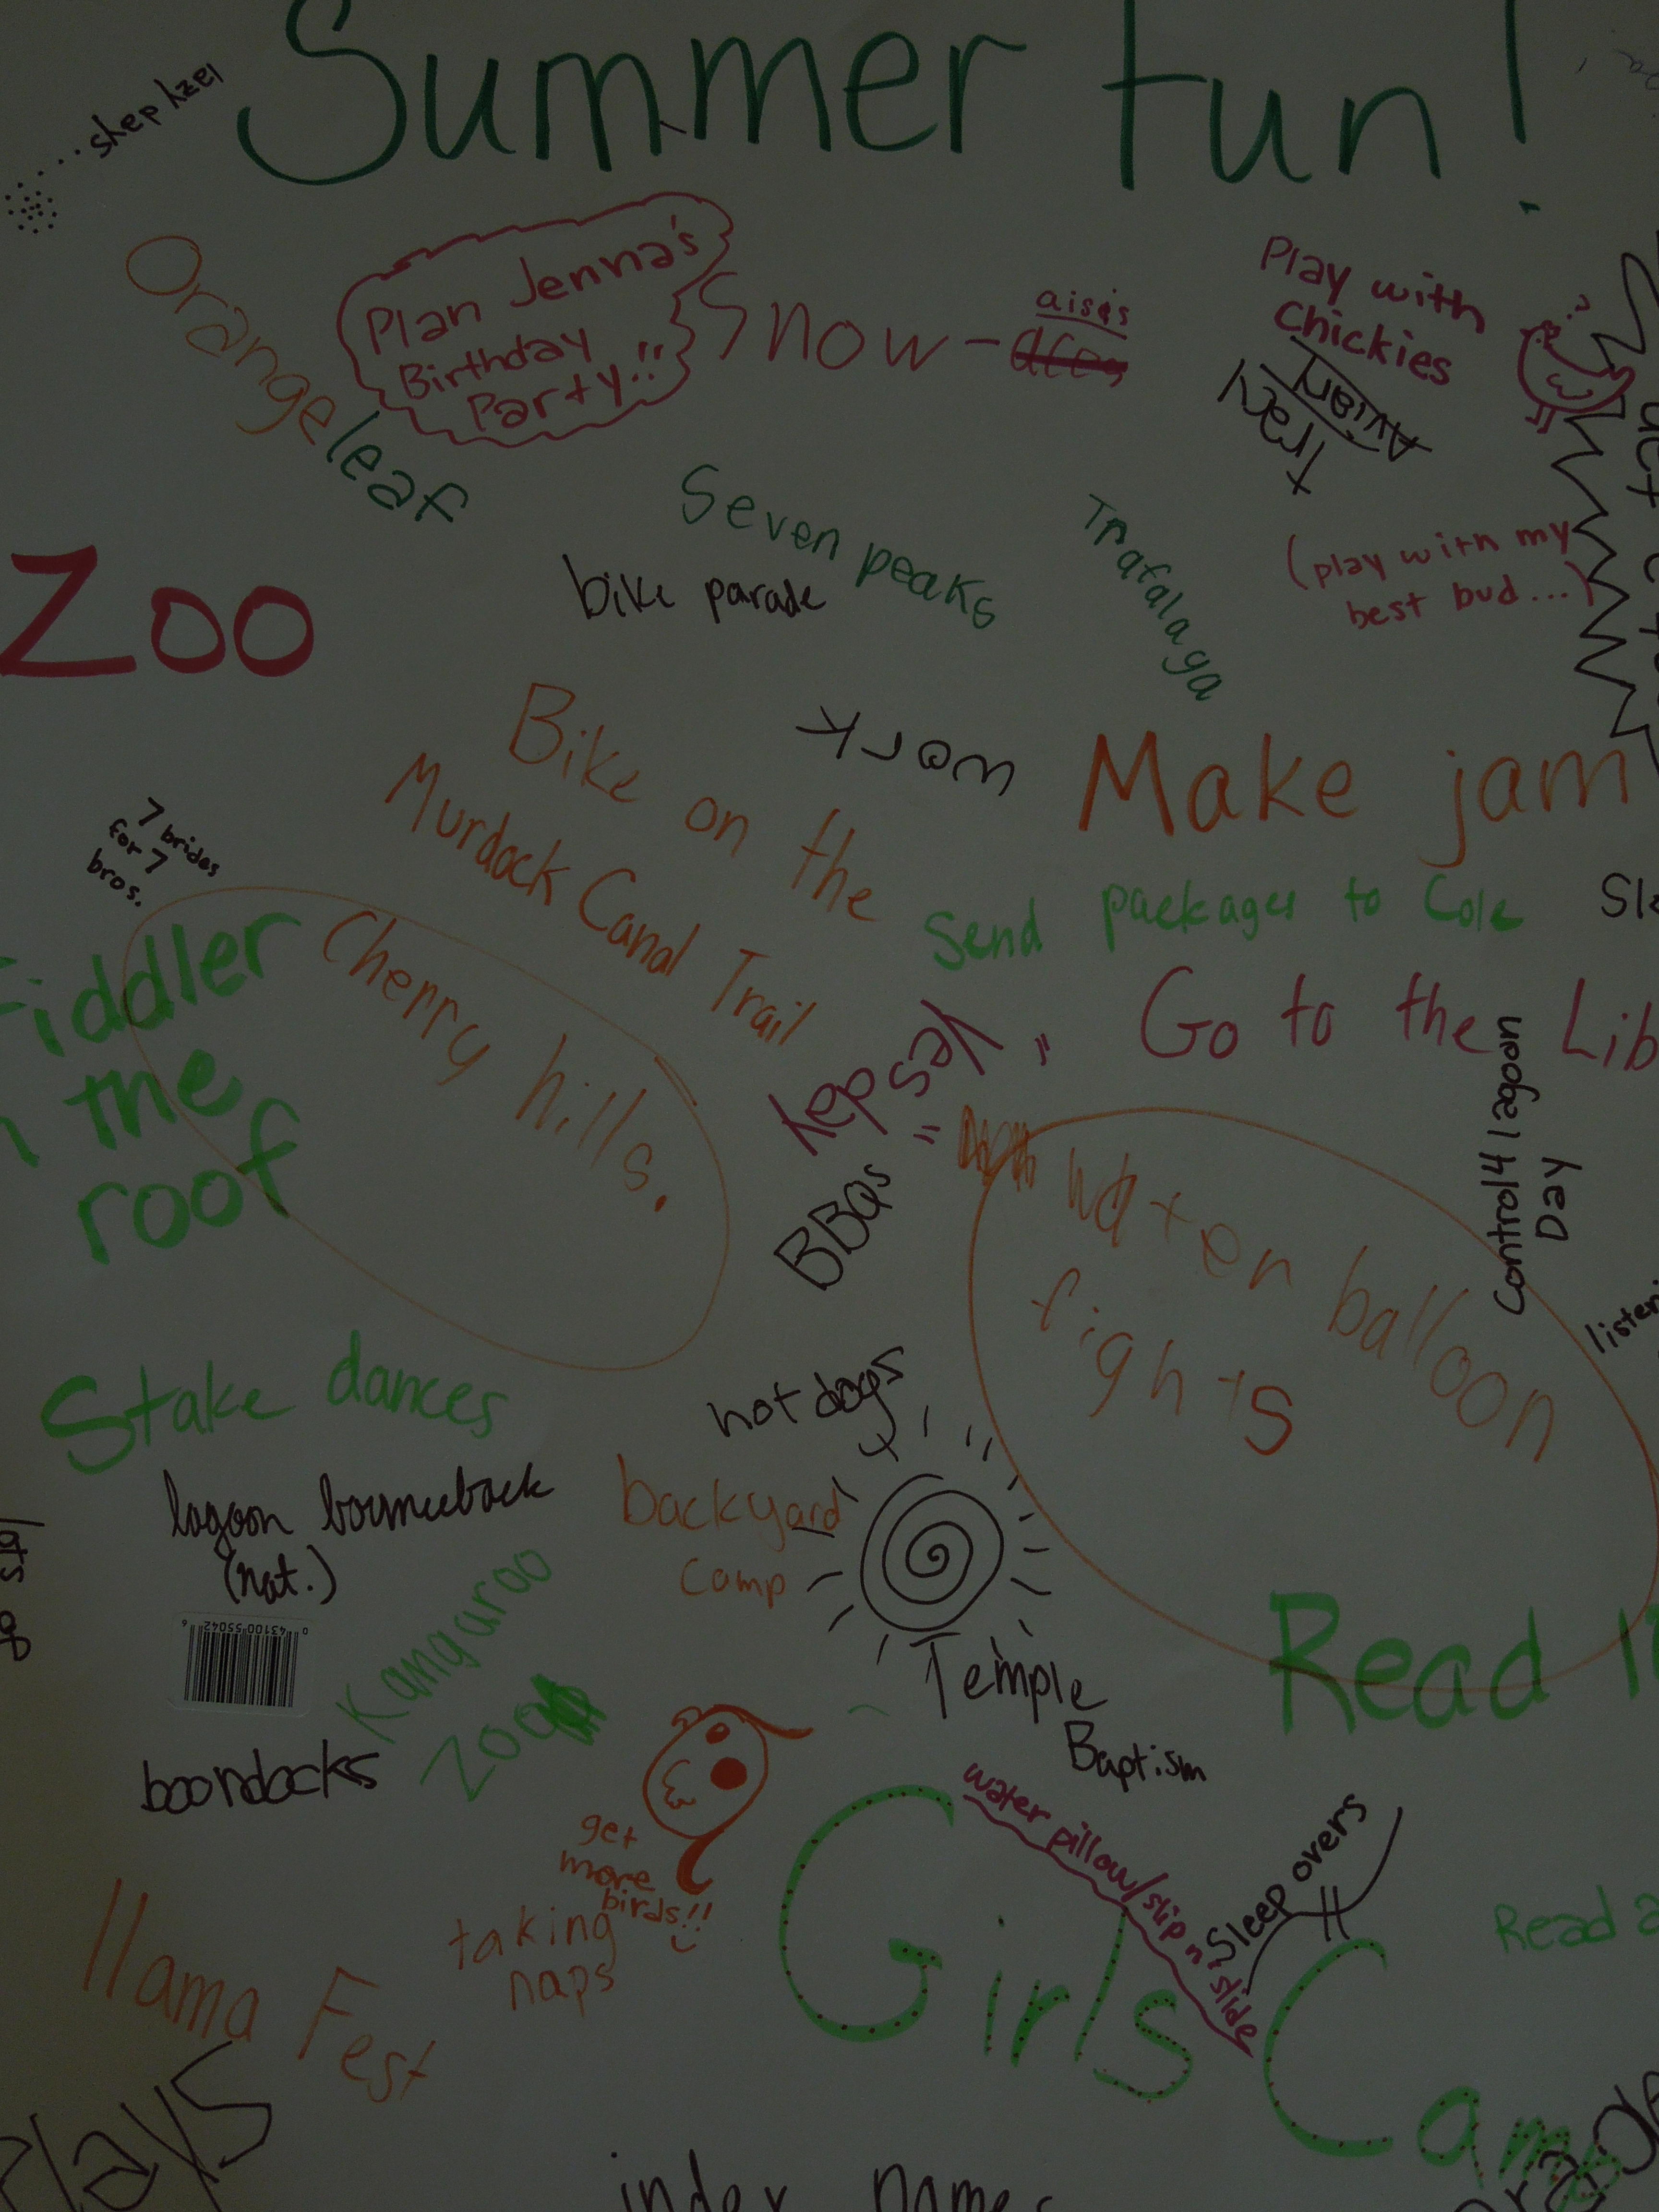 Summer fun!
lazy days
Orange leaf
Plan Jenna's
Birthday
Party!!
Snow-
aisis
Play with
chickies
?
Avian
Tracy
(play with my
best bud...)
Seven peaks
Trafalaga
bike parade
Zoo
work
Bike on the
Murdock Canal Trail
Make jam
7 brides
for 7
bros.
Send packages to Cole
Fiddler
the
roof
Cherry hills.
"Yes day"
Go to the Lib
Control4 lagoon
Day
BBQs
Water balloon
fights
listen
Stake dances
hot dogs
lagoon bounceback
(nat.)
backyard
camp
lots of
0 43100 55042 6
Kangaroo
Zoo
Temple
Baptism
Read
boondocks
get
more
birds!!
water pillow/slip n slide
Sleep overs
taking
naps
Read a
llama Fest
Girls Camp
plays
index names